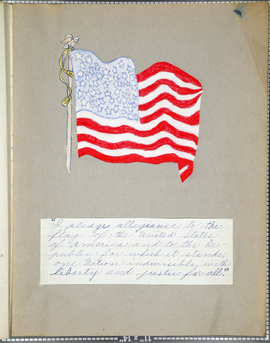 "I pledge allegiance to the
flag of the United States
of America and to the Re-
public for which it stands,
one Nation indivisible, with
liberty and justice for all."
11" x 14"